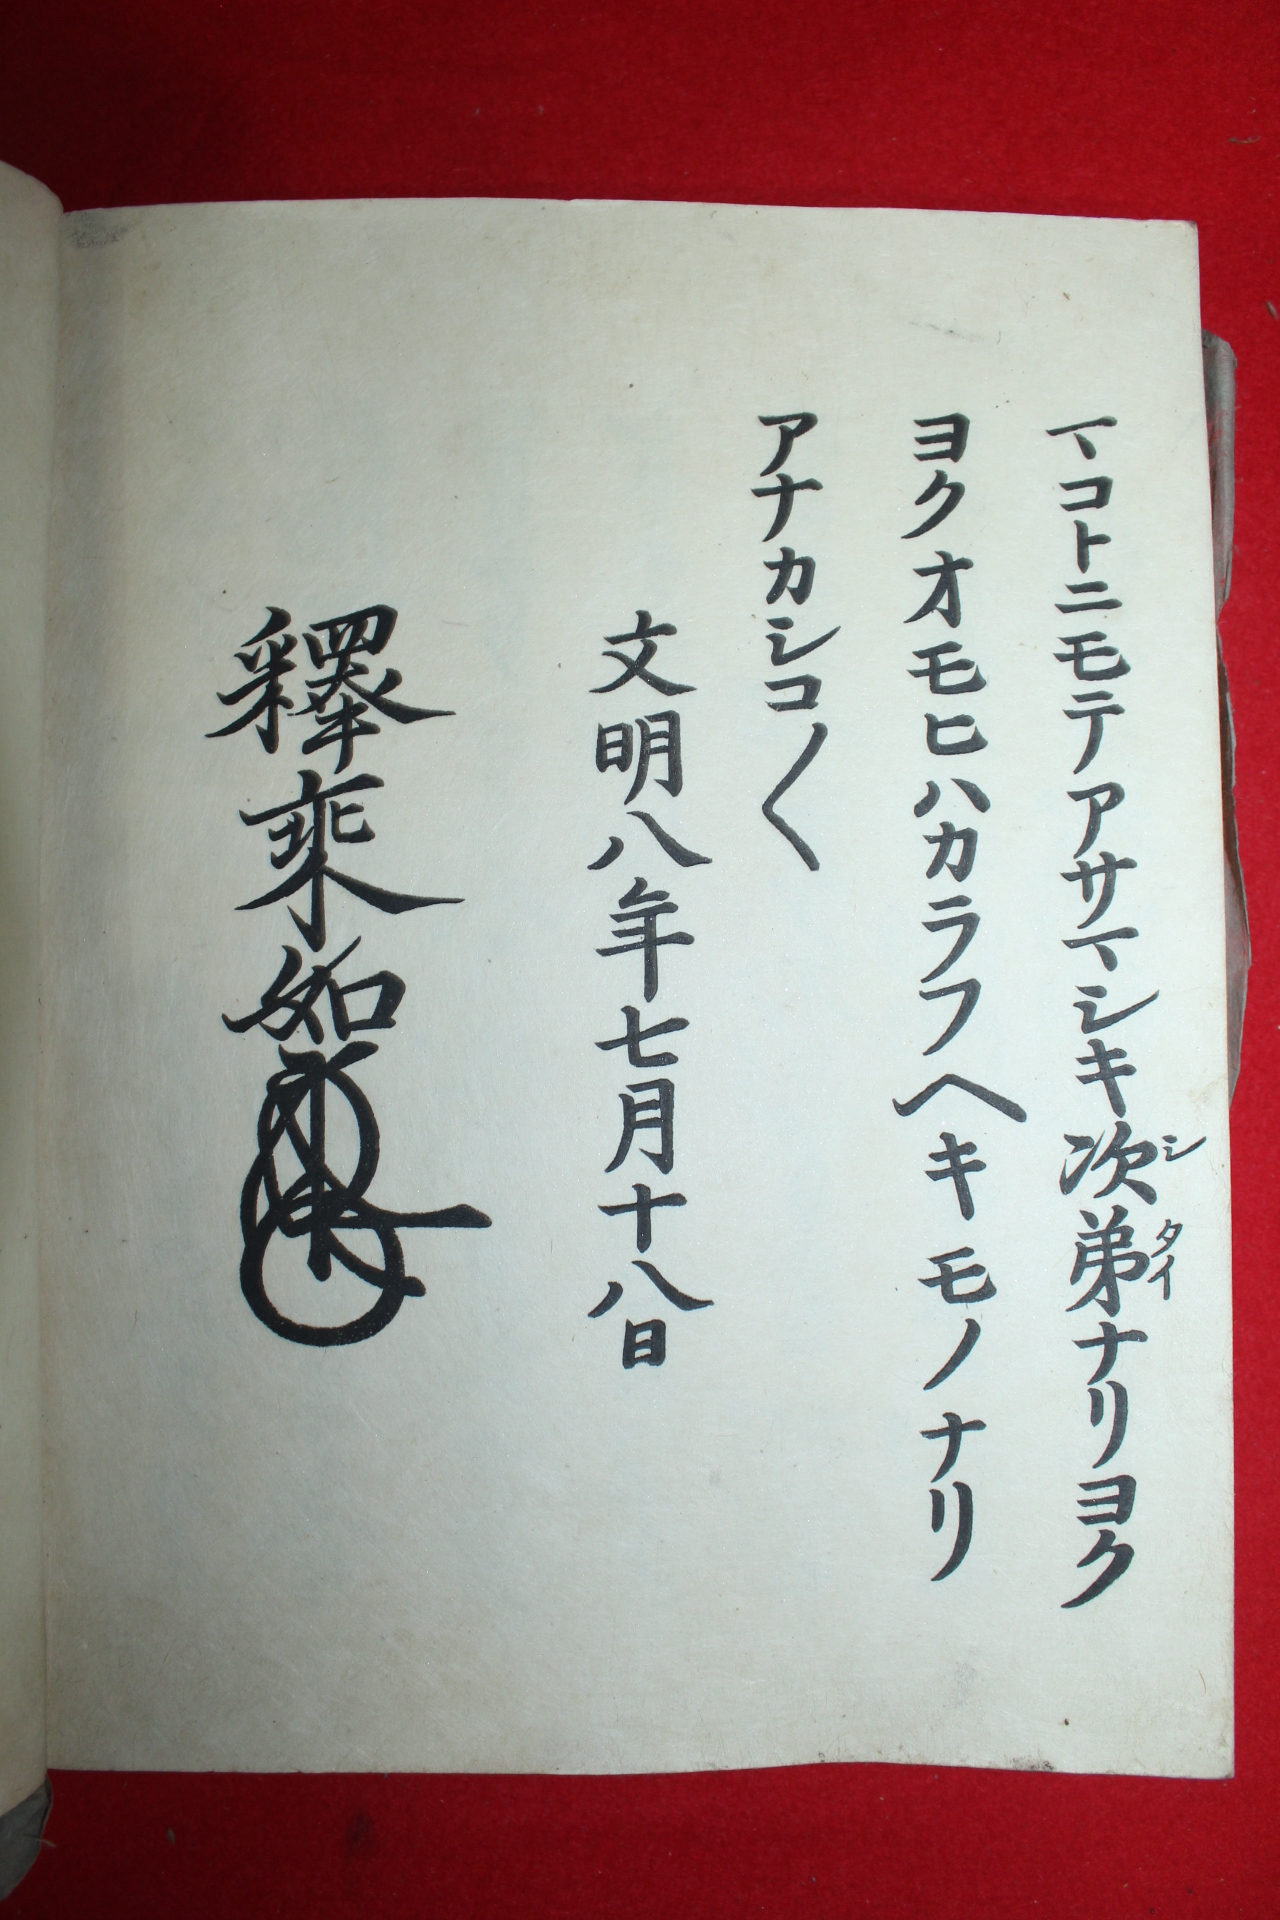 マコトニモテアサマシキ次弟ナリヨク
シタイ
ヨクオモヒハカラフヘキモノナリ
アナカシコ〱
文明八年七月十八日
釋乘如